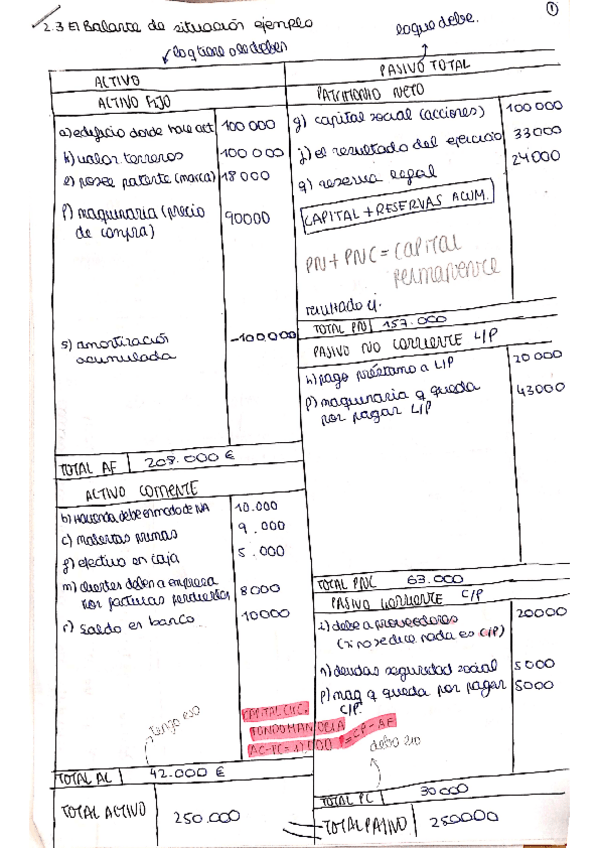 ①
2.3 El Balance de situación ejemplo
lo q tiene o le deben
lo que debe.
ACTIVO
ACTIVO FIJO
a) edificio donde hace act 100 000
k) valor terrenos 100 000
e) posee patente (marca) 18 000
f) maquinaria (precio
de compra) 90000
s) amortización
acumulada -100,000
TOTAL AF 208.000 €
ACTIVO CORRIENTE
b) Hacienda debe en modo de IVA 10.000
c) materias primas 9.000
g) efectivo en caja 5.000
m) clientes deben a empresa
por facturas pendientes 8000
r) Saldo en banco 10000
Tengo eso
TOTAL AC 42.000 €
TOTAL ACTIVO 250.000
PASIVO TOTAL
PATRIMONIO NETO
g) capital social (acciones) 100 000
j) el resultado del ejercicio 33000
q) reserva legal 24000
CAPITAL + RESERVAS ACUM.
PN + PNC = CAPITAL
Permanente
resultado ej.
TOTAL PN 157.000
PASIVO NO CORRIENTE L/P
h) pago préstamo a L/P 20 000
p) maquinaria q queda
por pagar L/P 43000
TOTAL PNC 63.000
PASIVO CORRIENTE C/P
i) debe a proveedores
(si no se dice nada es C/P) 20000
n) deudas seguridad social 5000
p) maq q queda por pagar
C/P. 5000
CAPITAL CIRC.
FONDO MANIOBRA
AC-PC = 12,000 = CP - AF
debo eso
TOTAL PC 30000
TOTAL PASIVO 250000